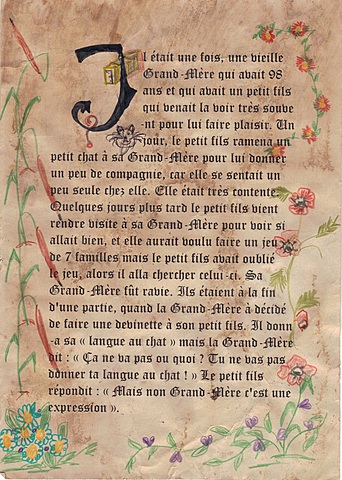 Il était une fois, une vieille
Grand-Mère qui avait 98
ans et qui avait un petit fils
qui venait la voir très souve
-nt pour lui faire plaisir. Un
jour, le petit fils ramena un
petit chat à sa Grand-Mère pour lui donner
un peu de compagnie, car elle se sentait un
peu seule chez elle. Elle était très contente.
Quelques jours plus tard le petit fils vient
rendre visite à sa Grand-Mère pour voir si
allait bien, et elle aurait voulu faire un jeu
de 7 familles mais le petit fils avait oublié
le jeu, alors il alla chercher celui-ci. Sa
Grand-Mère fût ravie. Ils étaient à la fin
d'une partie, quand la Grand-Mère à décidé
de faire une devinette à son petit fils. Il donn
-a sa « langue au chat » mais la Grand-Mère
dit : « Ça ne va pas ou quoi ? Tu ne vas pas
donner ta langue au chat ! » Le petit fils
répondit : « Mais non Grand-Mère c'est une
expression ».